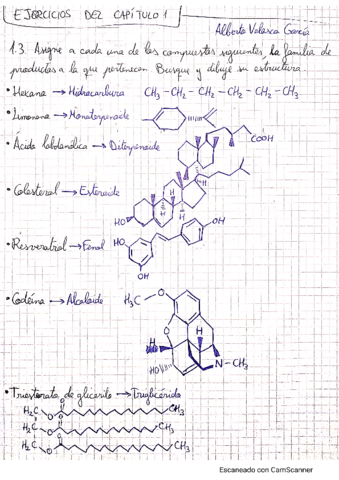 EJERCICIOS DEL CAPÍTULO 1
Alberto Velasco García
1.3. Asigne a cada uno de los compuestos siguientes, la familia de
productos a la que pertenecen. Busque y dibuje su estructura.
• Hexano → Hidrocarburo CH₃-CH₂-CH₂-CH₂-CH₂-CH₃
• Limoneno → Monoterpenoide
• Ácido labdanólico → Diterpenoide
COOH
• Colesterol → Esteroide
H
H
H
HO
• Resveratrol → Fenol
HO
OH
OH
• Codeína → Alcaloide
H₃C
O
O
H
N-CH₃
HO
• Triestearato de glicerilo → Triglicérido
H₂C
O
O
CH₃
H₂C
O
CH₃
H₂C
O
CH₃
Escaneado con CamScanner